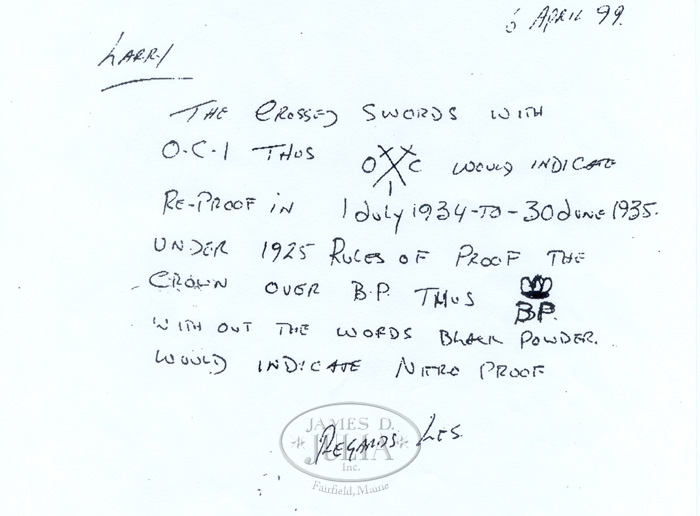 6 APRIL 99.
LARRY
THE CROSSED SWORDS WITH
O.C.1 THUS O C 1 WOULD INDICATE
RE-PROOF IN 1 JULY 1934-TO-30 JUNE 1935.
UNDER 1925 RULES OF PROOF THE
CROWN OVER B.P. THUS BP.
WITH OUT THE WORDS BLACK POWDER.
WOULD INDICATE NITRO PROOF
REGARDS LES.
JAMES D.
JULIA
Inc.
Fairfield, Maine